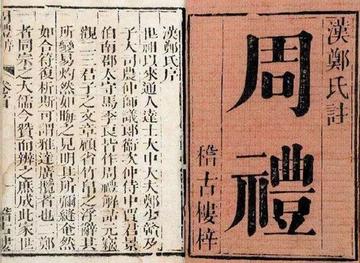 漢鄭氏註
周禮
稽古樓梓
漢鄭氏序
世祖以來通人達士大中大夫鄭少贛及
子大司農仲師議郎衛次仲侍中賈君景
伯南郡太守馬季長皆作周禮解詁元竊
觀二三君子之文章顧省竹帛之浮辭其
所變易灼然如晦之見明其所彌縫奄然
如合符復析斯可謂雅達廣攬者也二鄭
者同宗之大儒今贊而辨之庶成此家世
卷首
稽古樓